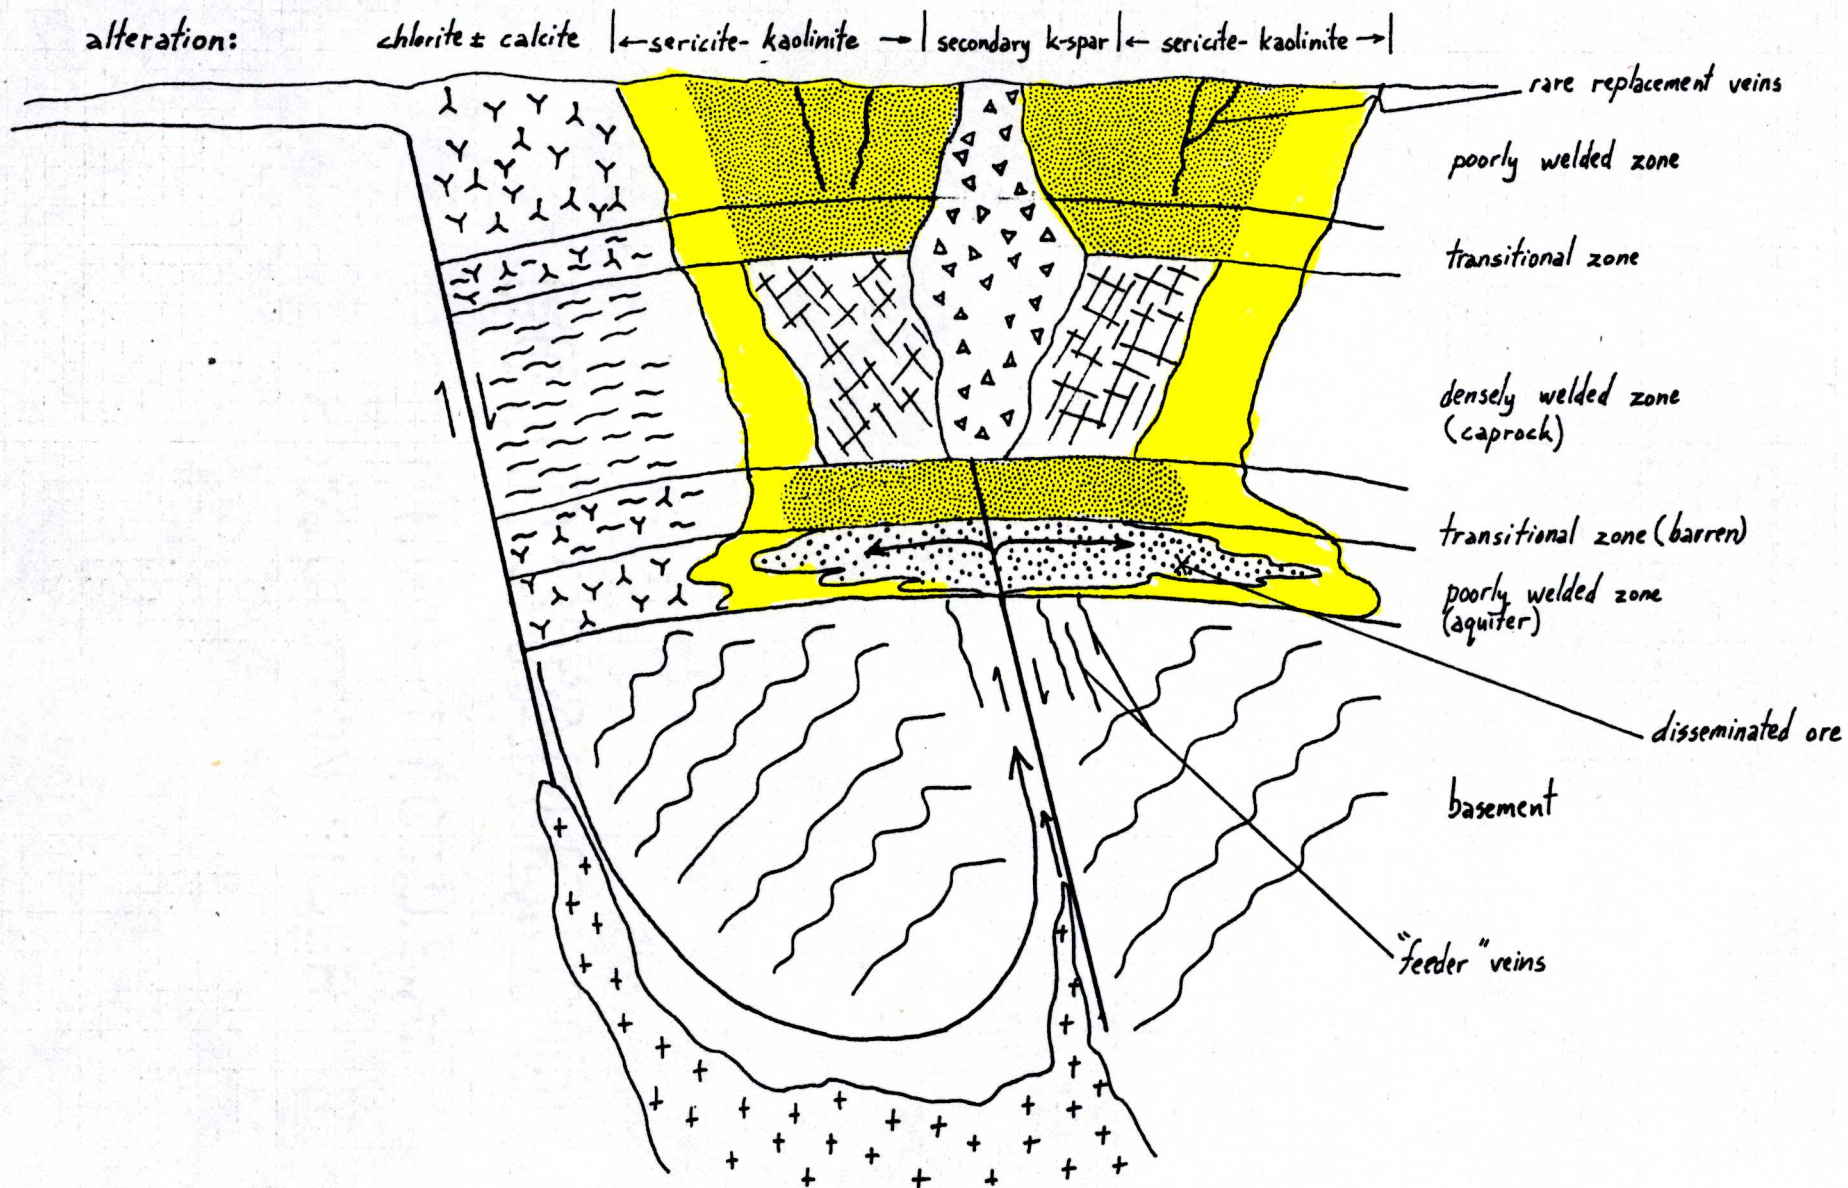 alteration: chlorite ± calcite |←sericite- kaolinite →| secondary k-spar |← sericite- kaolinite →|
rare replacement veins
poorly welded zone
transitional zone
densely welded zone
(caprock)
transitional zone (barren)
poorly welded zone
(aquifer)
disseminated ore
basement
"feeder" veins